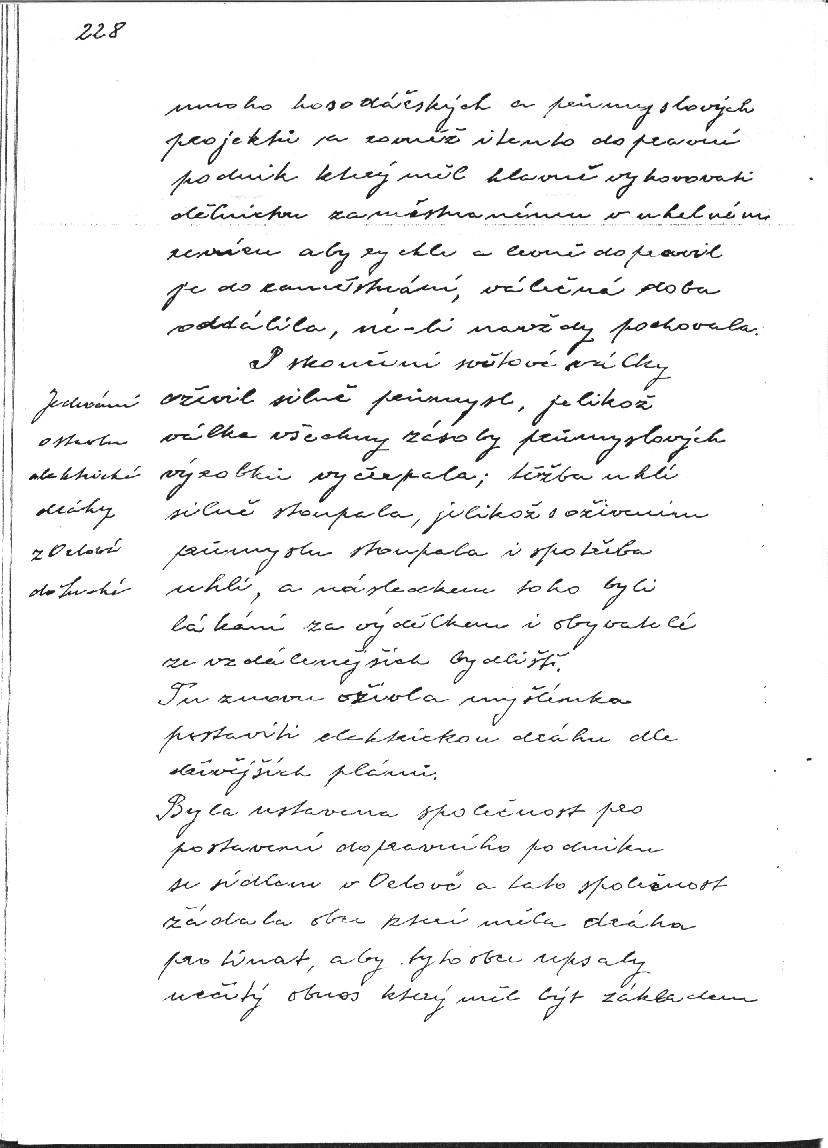 228
mnoho hosodářských a průmyslových
projektů a rovněž i tento dopravní
podnik který měl hlavně vyhovovati
dělnictvu zaměstnanému v uhelném
revíru aby rychle a levně dopravil
je do zaměstnání, válečná doba
oddálila, né-li navždy pochovala.
I skončení světové války
oživil silně průmysl, jelikož
válka všechny zásoby průmyslových
výrobků vyčerpala; těžba uhlí
silně stoupala, jelikož s oživením
průmyslu stoupala i spotřeba
uhlí, a následkem toho byli
lákáni za výdělkem i obyvatelé
ze vzdálenějších bydlišť.
Tu znovu ožívla myšlénka
postaviti elektrickou dráhu dle
dřívějších plánů.
Byla ustavena společnost pro
postavení dopravního podniku
se sídlem v Orlové a tato společnost
žádala obce které měla dráha
protínat, aby tyto obce upsaly
určitý obnos který měl být základem
Jednání
o stavbu
elektrické
dráhy
z Orlové
do Suché